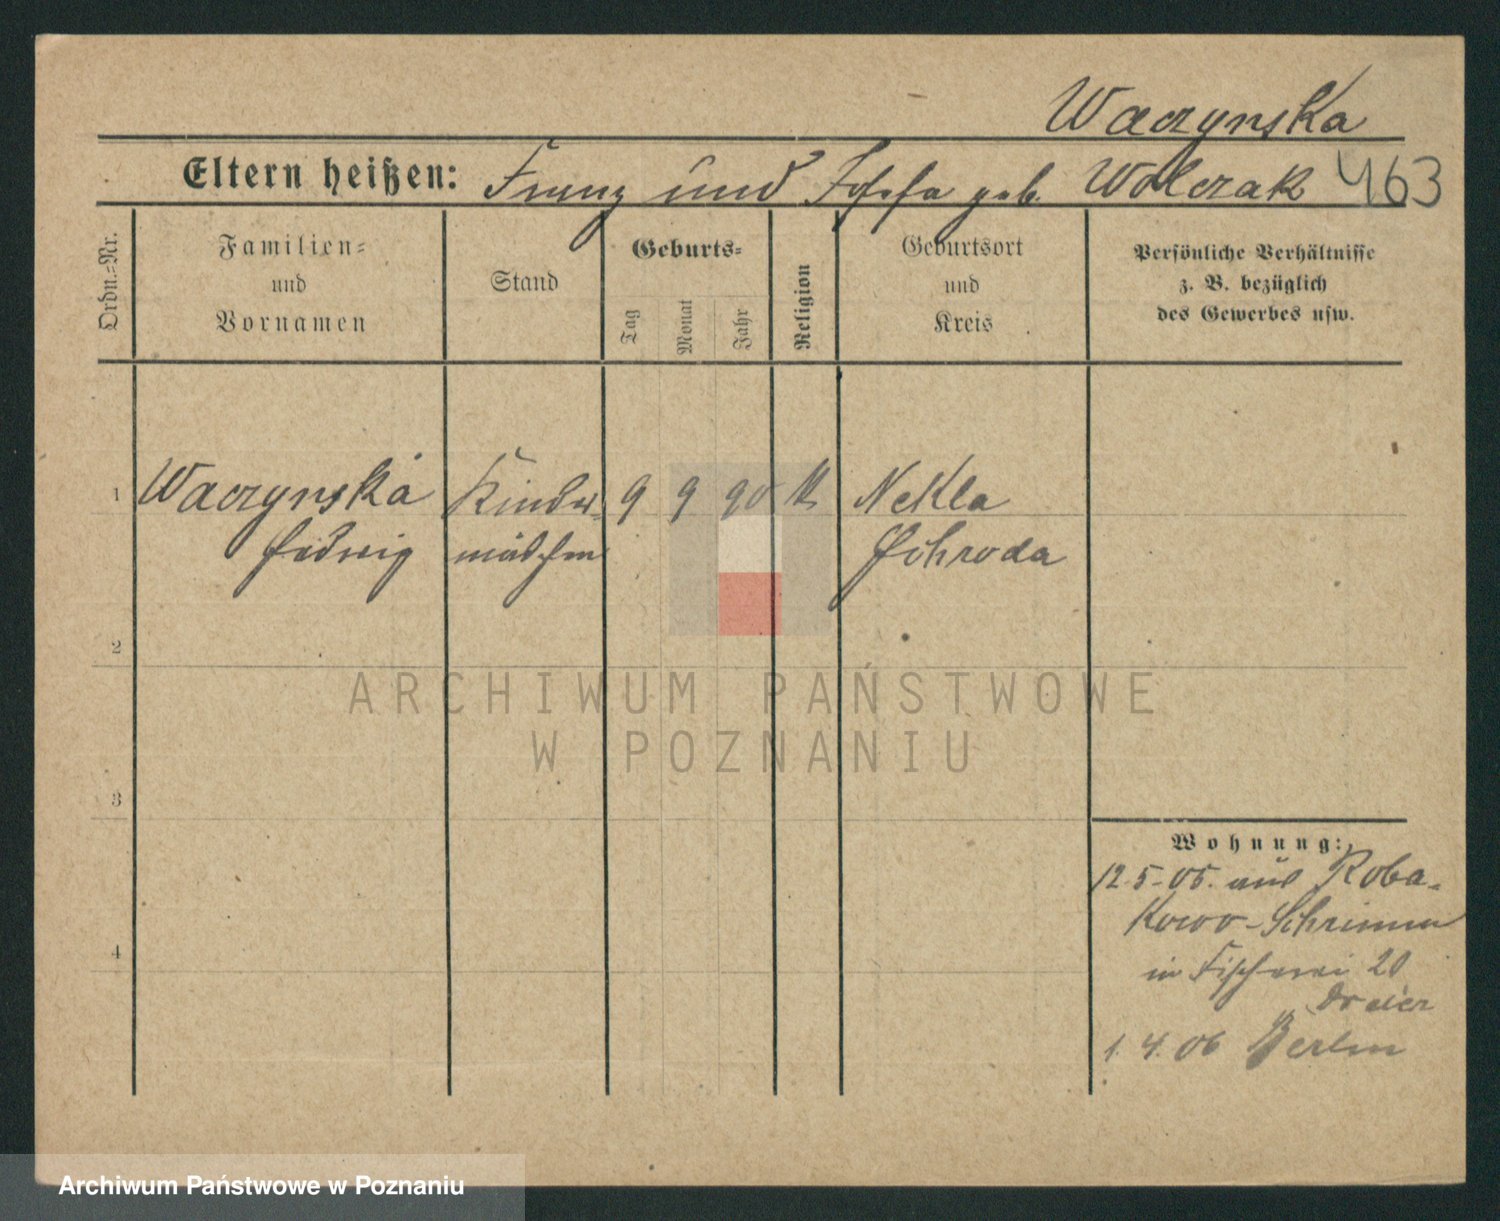 Waczynska
Eltern heißen: Franz und Josefa geb. Wolczak 463
Ordn.-Nr.
Familien-
und
Vornamen
Stand
Geburts-
Tag
Monat
Jahr
Religion
Geburtsort
und
Kreis
Persönliche Verhältnisse
z. B. bezüglich
des Gewerbes usw.
1 Waczynska Kinder- 9 9 90 k Nekla
Hedwig mädchen Schroda
2
3
4
Wohnung:
12.5.05. aus Roba-
kowo-Schrimm
in Fischerei 20
Dreier
1. 4. 06 Berlin
ARCHIWUM PAŃSTWOWE
W POZNANIU
Archiwum Państwowe w Poznaniu